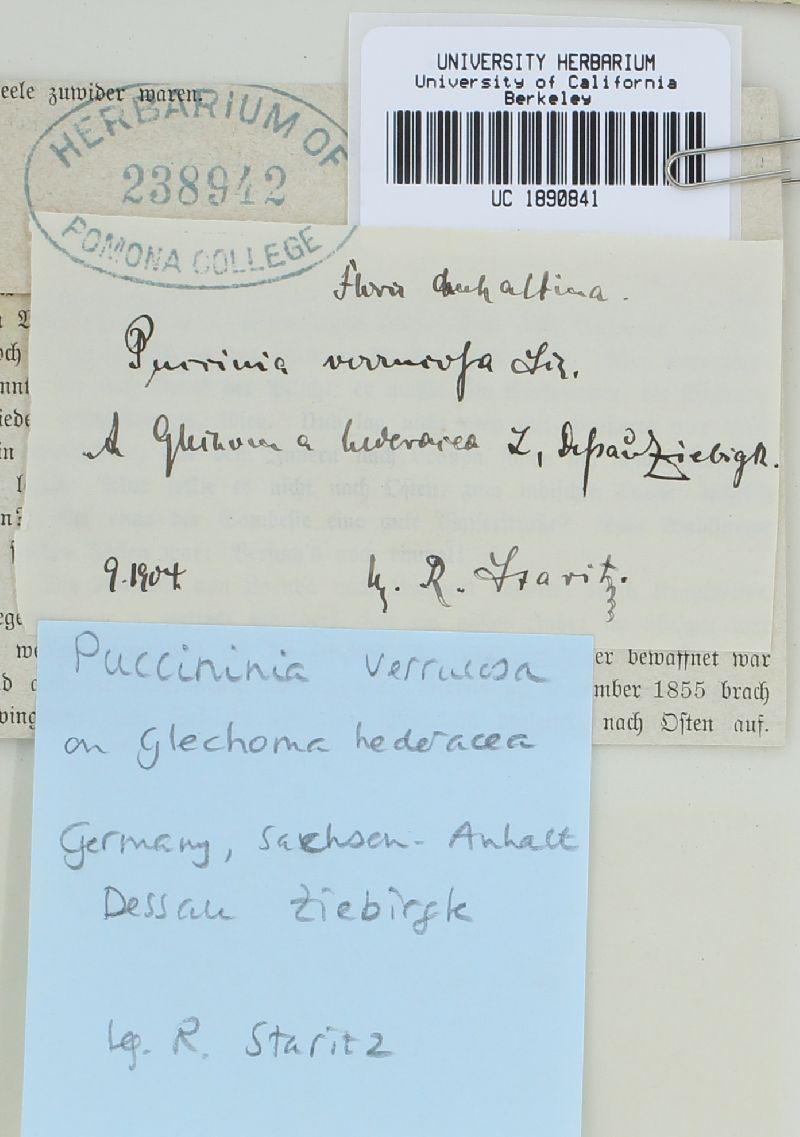 eele zuwider waren.
HERBARIUM OF
238942
POMONA COLLEGE
UNIVERSITY HERBARIUM
University of California
Berkeley
UC 1890841
Flora Anhaltina.
Puccinia verrucosa
A Glechoma hederacea L, Dessau Ziebigk.
9.1904 R. Staritz.
och
nnt
iede
in
ege
we
er bewaffnet war
mber 1855 brach
ving
nach Osten auf.
Puccininia verrucosa
on Glechoma hederacea
Germany, Sachsen-Anhalt
Dessau Ziebirgk
Leg. R. Staritz